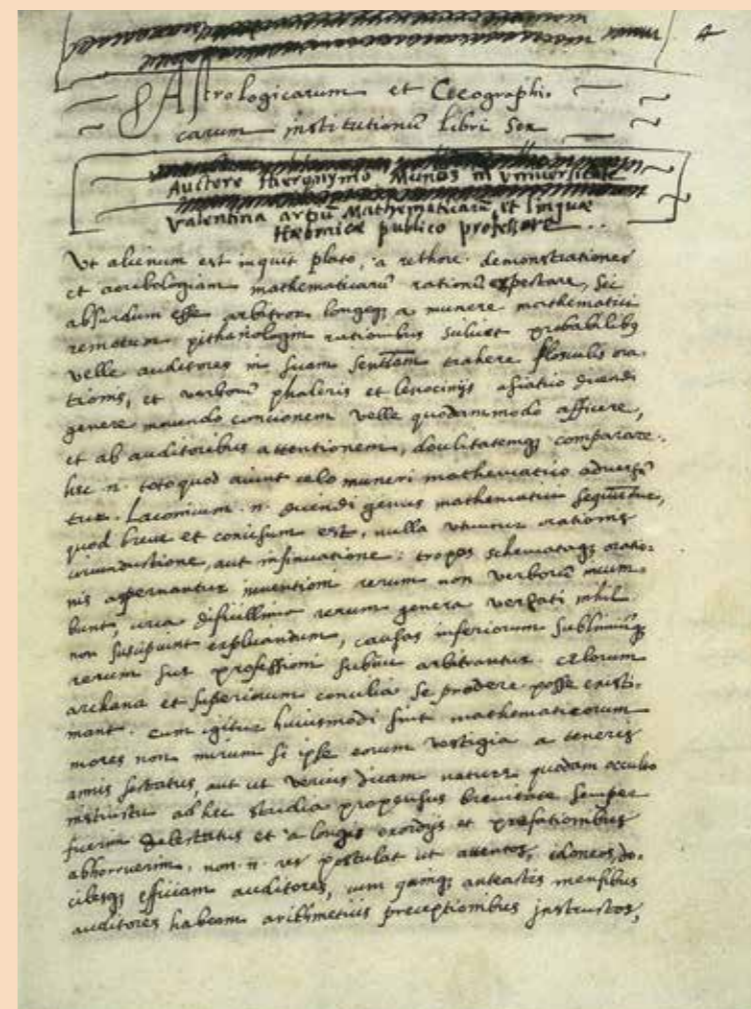 A
Astrologicarum et Geographi-
carum institutionũ libri sex
Auctore Hieronymo Munos in Vniversitate
Valentina artiũ Mathematicarũ et linguæ
Hæbraicæ publico professore
Vt alienum est inquit plato, a rethore demonstrationes
et acribologiam mathematicarũ rationũ expectare, sic
absurdum esse arbitror longeq; a munere mathematici
remotum pithanologin rationibus scilicet probabilibq
velle auditores in suam sententiam trahere flosculis ora-
tionis, et verborũ phaleris et lenocinijs asiatico dicendi
genere movendo concionem velle quodammodo afficere,
et ab auditoribus attentionem, docilitatemq; comparare.
hec .n. toto quod aiunt celo muneri mathematico adversã
tur. Laconicum .n. dicendi genus mathematici sequuntur,
quod breve et concisum est, nulla utuntur orationis
circunductione, aut insinuatione: tropos schemataq; oratio-
nis aspernantur inventioni rerum non verborũ incum-
bunt, circa dificillima rerum genera versati nihil
non suscipiunt explicandum, causas inferiorum sublimiũq;
rerum sue professioni subiici arbitrantur. celorum
archana et superiorum concilia se prodere posse existi-
mant. cum igitur huiusmodi sint mathematicorum
mores non mirum si ipse eorum vestigia a teneris
annis sectatus, aut ut verius dicam nature quodam occulto
instinctu ad hec studia propensus brevitate semper
fuerim delectatus et a longis exordijs et prefationibus
abhorruerim. non .n. res postulat ut attentos, idoneos, do-
cilesq; efficiam auditores, cum quinq; anteactis mensibus
auditores habeam arithmeticis preceptionibus instructos,